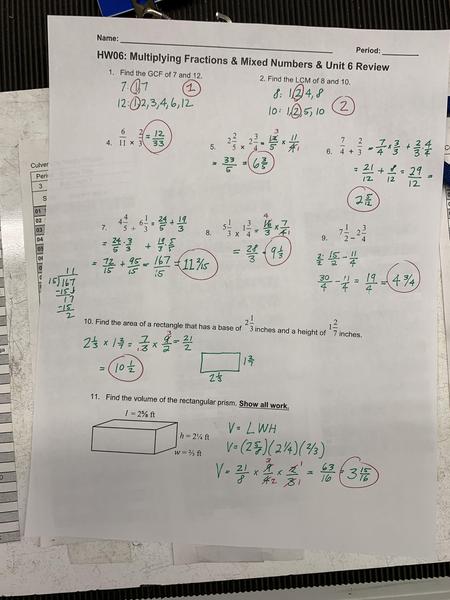 Name:
Period:
HW06: Multiplying Fractions & Mixed Numbers & Unit 6 Review
1. Find the GCF of 7 and 12.
7: 1, 7
1
12: 1, 2, 3, 4, 6, 12
2. Find the LCM of 8 and 10.
8: 1, 2, 4, 8
10: 1, 2, 5, 10
2
4. 6/11 × 2/3 = 12/33
5. 2 2/5 × 2 3/4 = 12/5 × 11/4
= 33/5 = 6 3/5
6. 7/4 + 2/3 = 7/4 · 3/3 + 2/3 · 4/4
= 21/12 + 8/12 = 29/12 =
2 5/12
7. 4 4/5 + 6 1/3 = 24/5 + 19/3
= 24/5 · 3/3 + 19/3 · 5/5
= 72/15 + 95/15 = 167/15 = 11 2/15
11
15 167
-15
17
-15
2
8. 5 1/3 × 1 3/4 = 16/3 × 7/4
= 28/3 = 9 1/3
9. 7 1/2 - 2 3/4
2/2 · 15/2 - 11/4
30/4 - 11/4 = 19/4 = 4 3/4
10. Find the area of a rectangle that has a base of 2 1/3 inches and a height of 1 2/7 inches.
2 1/3 × 1 2/7 = 7/3 × 9/2 = 21/2
= 10 1/2
2 1/3
11. Find the volume of the rectangular prism. Show all work.
l = 2⅝ ft
h = 2¼ ft
w = ⅔ ft
V = LWH
V = (2 5/8)(2 1/4)(2/3)
V = 21/8 × 9/4 × 2/3 = 63/16 = 3 15/16